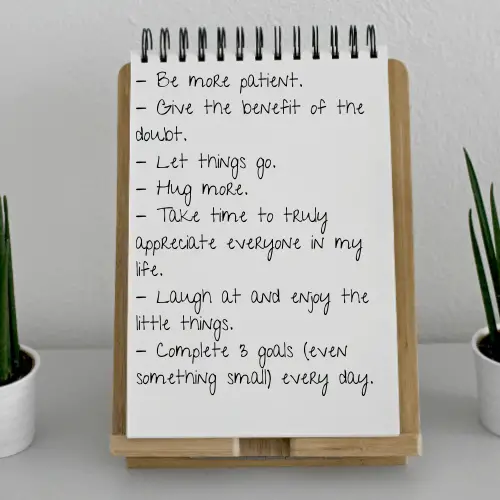 - Be more patient.
- Give the benefit of the
doubt.
- Let things go.
- Hug more.
- Take time to truly
appreciate everyone in my
life.
- Laugh at and enjoy the
little things.
- Complete 3 goals (even
something small) every day.